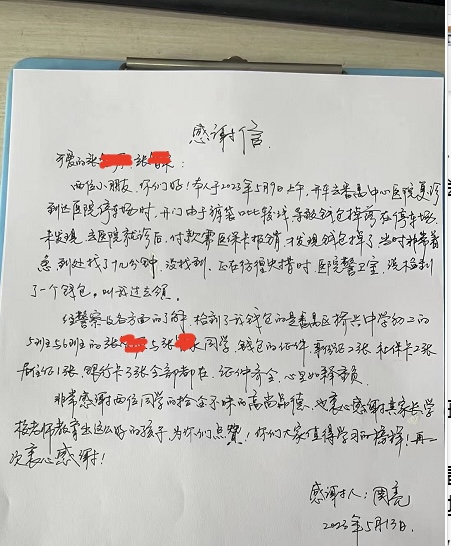 感谢信
可爱的张 张 :
两位小朋友,你们好!本人于2023年5月9日上午,开车去番禺中心医院复诊
到达医院停车场时,开门由于裤袋比较浅导致钱包掉落在停车场
未发现,去医院就诊后,付款需医保卡报销,才发现钱包掉了当时非常着
急到处找了十几分钟,没找到,正在彷徨失措时医院警卫室,说捡到
了一个钱包,叫我过去领。
经警察及各方面的了解,捡到了我钱包的是番禺区桥兴中学初二的
5班与6班的张 与张 同学,钱包的证件,驾驶证2张,社保卡2张
居住证1张,银行卡3张全部都在,证件齐全,心里如释重负。
非常感谢两位同学的拾金不昧的高尚品德,也衷心感谢其家长学
校老师教育出这么好的孩子,为你们点赞!你们大家值得学习的榜样!再一
次衷心感谢!
感谢人:周亮
2023年5月13日.